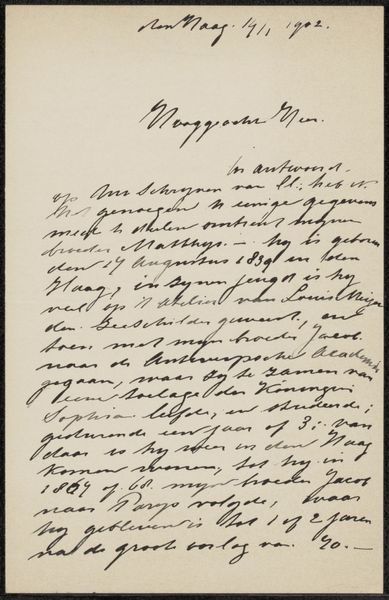 den Haag. 19/1 1902.
Hooggeachte Heer.
In antwoord
op Uw schrijven van ll: heb ik
het genoegen U eenige gegevens
mede te deelen omtrent mijnen
broeder Matthys. — hij is geboren
den 17 Augustus 1839 in den
Haag, in zijnen jeugd is hij
veel op 't atelier van Louis Meijer
den Zeeschilder geweest, en
toen met mijn broeder Jacob
naar de Antwerpsche Academie
gegaan, waar zij te zamen van
eene toelage der Koningin
Sophia leefde, en studeerde;
gedurende een jaar of 3: van
daar is hij weer in den Haag
komen wonen, tot hij in
1867 of 68. mijn broeder Jacob
naar Parijs volgde, waar
hij gebleven is tot 1 of 2 jaren
na de groote oorlog van 70. —